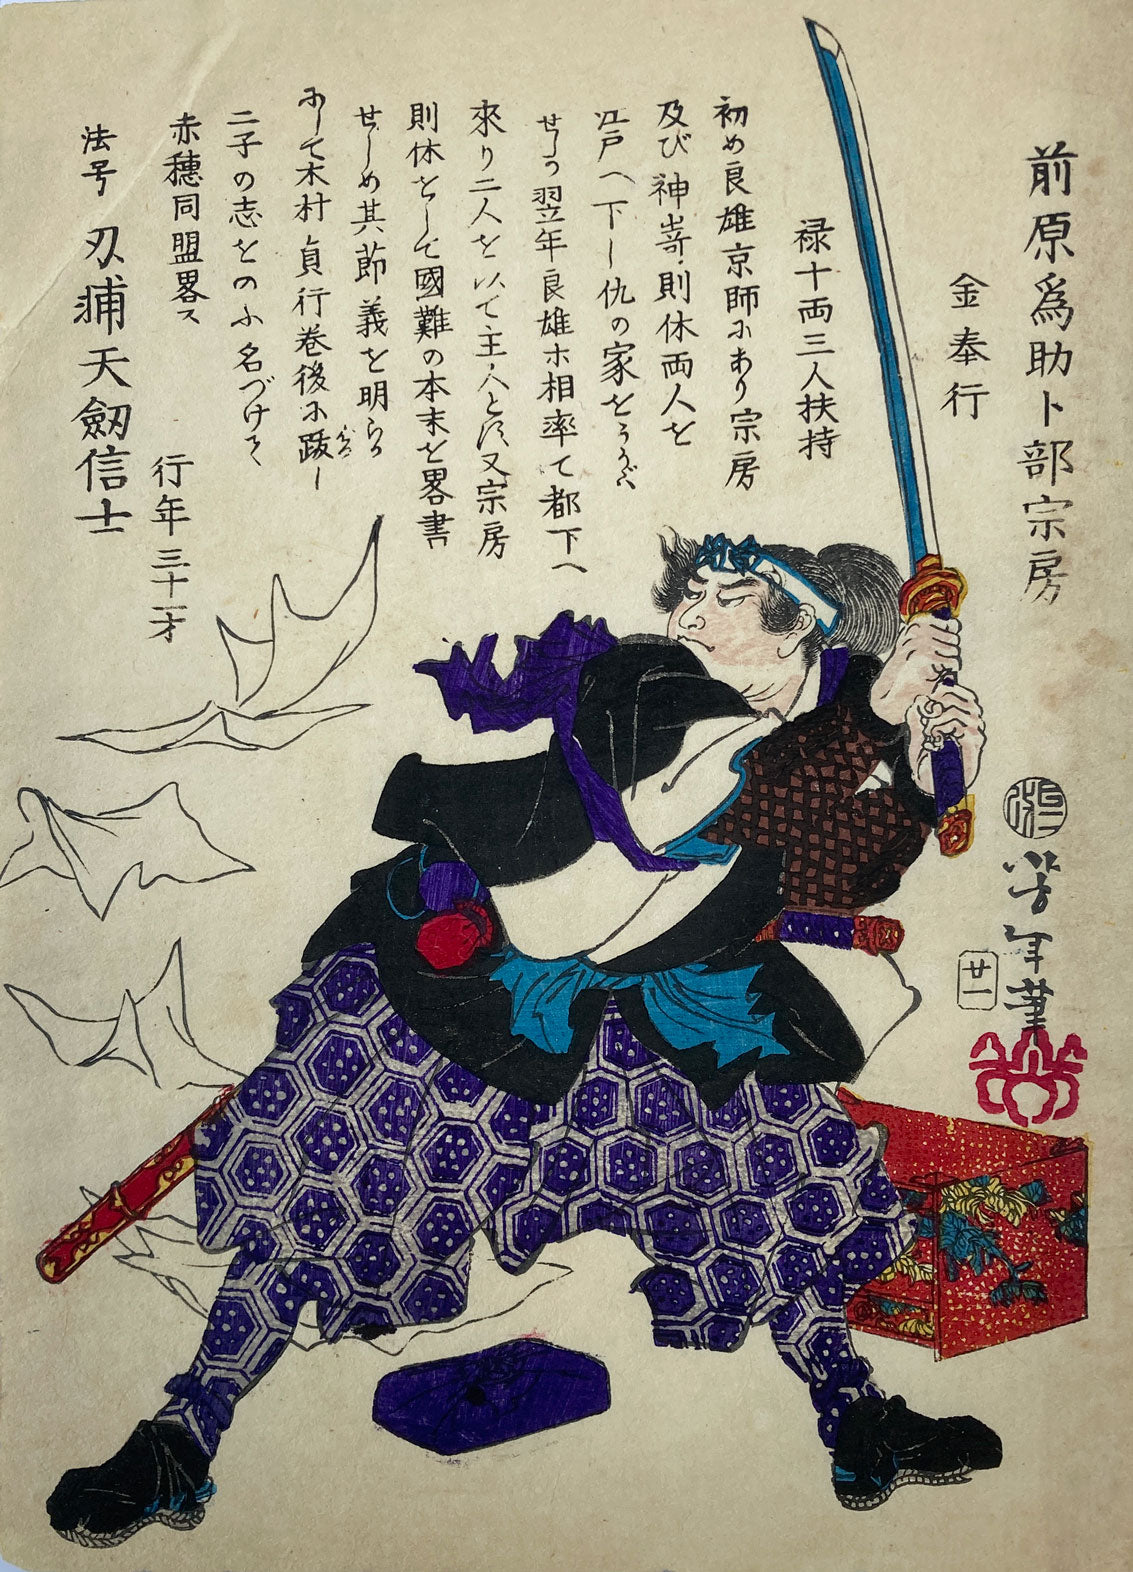 前原爲助卜部宗房
金奉行
禄十両三人扶持
初め良雄京師にあり宗房
及び神嵜則休両人を
江戸へ下し仇の家をうかゞハ
せしう翌年良雄木相率て都下へ
來り二人を以て主人とす又宗房
則休をして國難の本末を畧書
せしめ其節義を明らか
にして木村貞行巻後に跋し
二子の志をのふ名づけて
赤穗同盟畧ス
行年三十一才
法号 刃補天劔信士
芳年筆
廿一